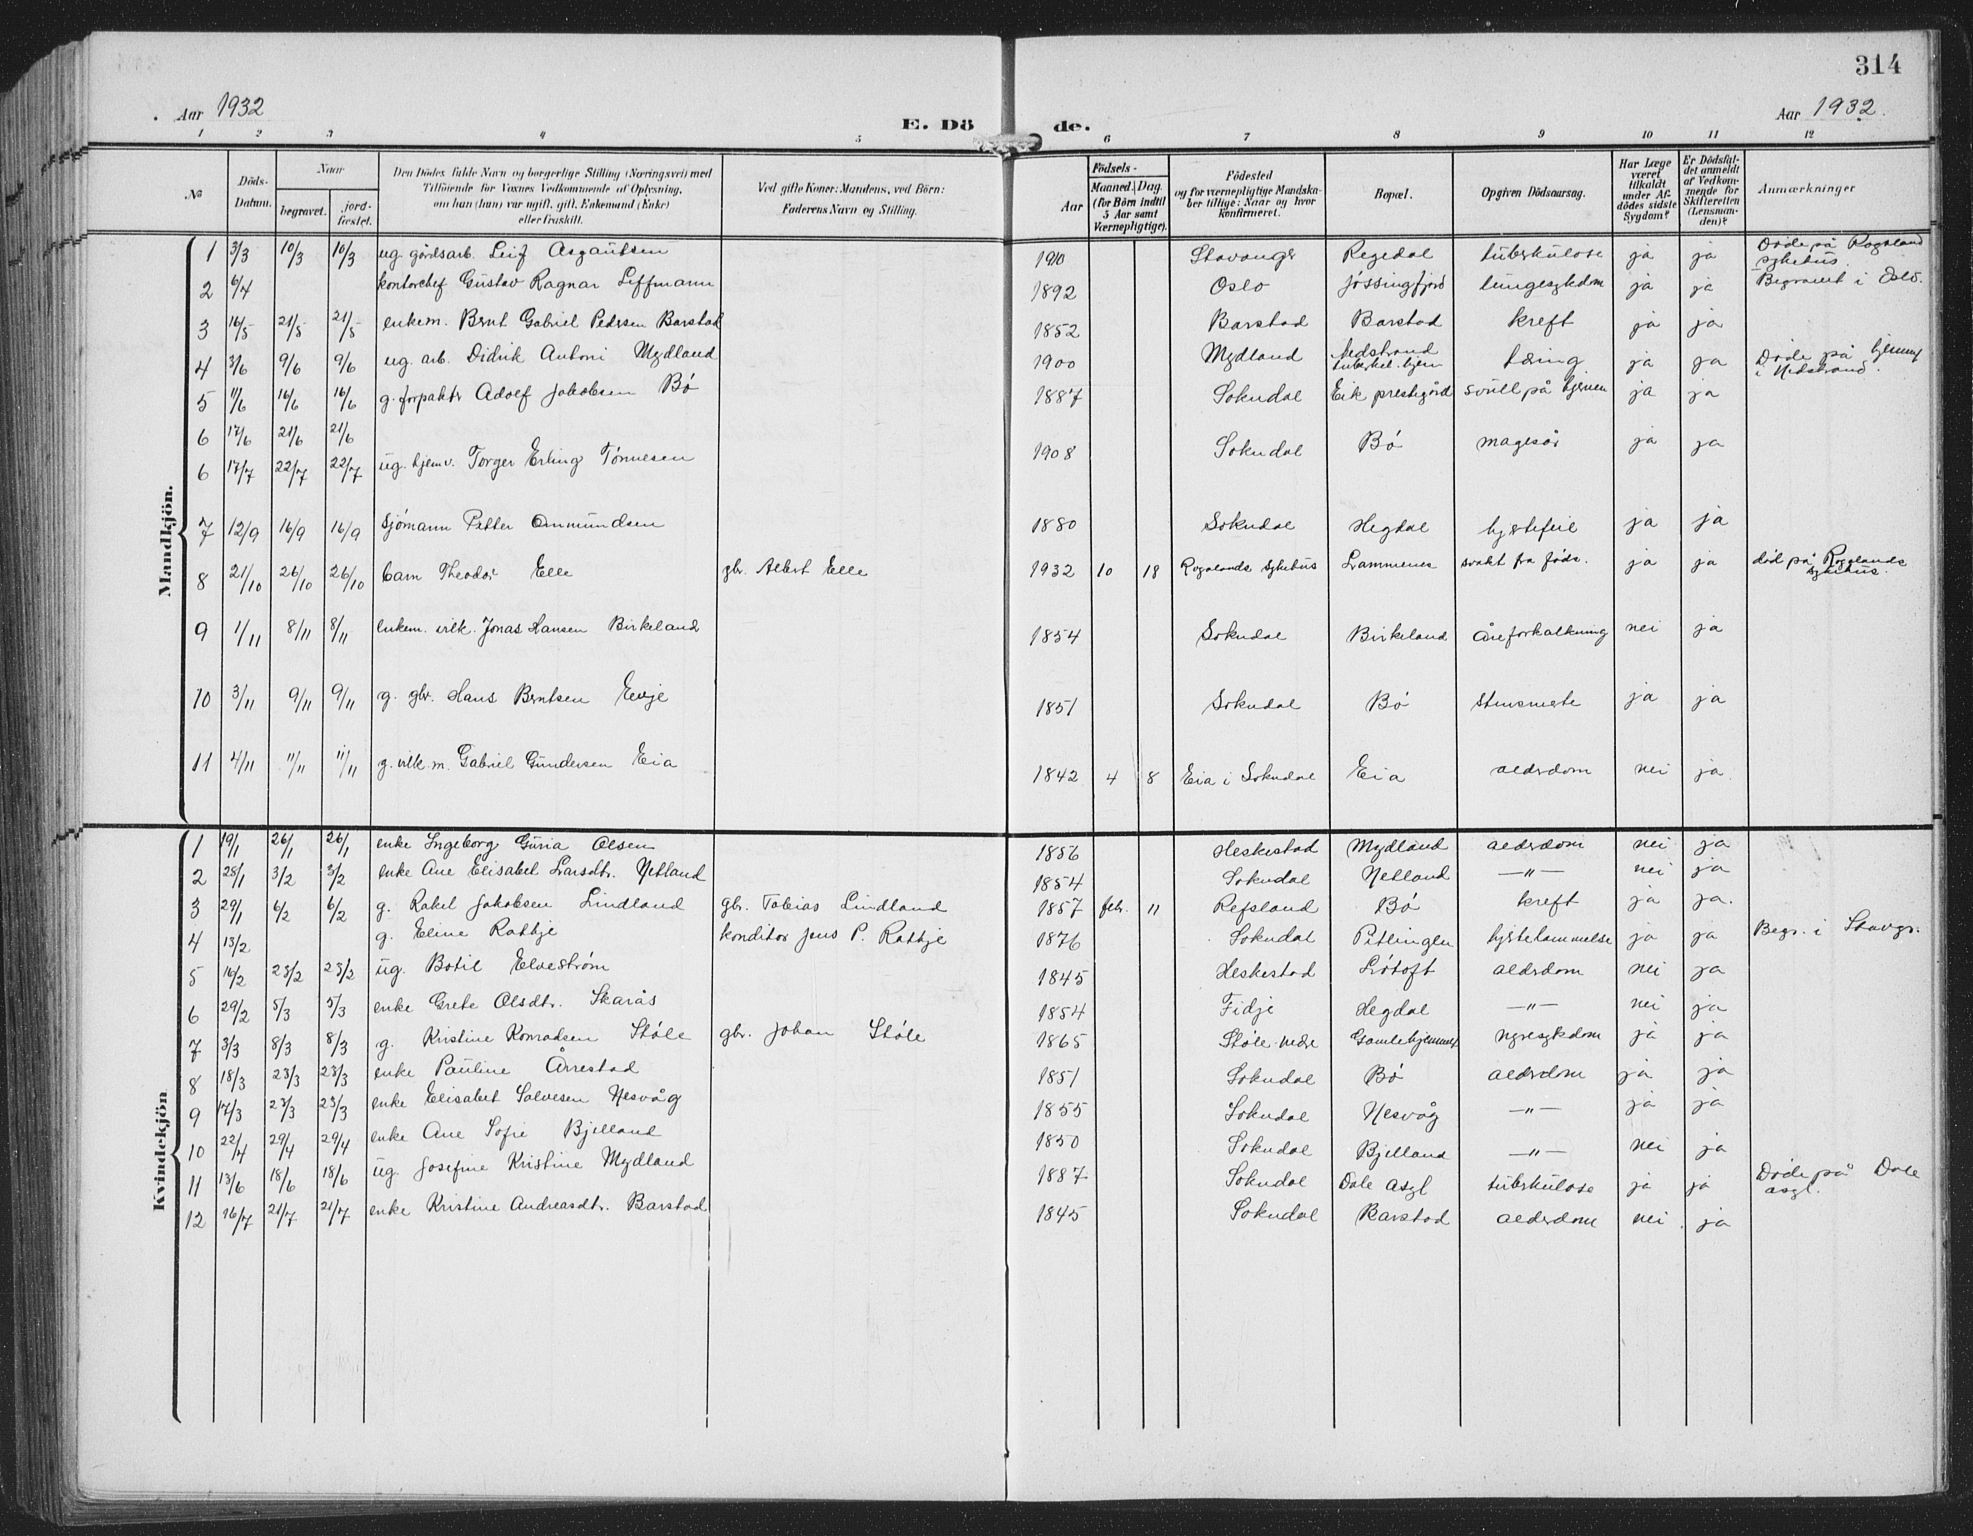 314
Aar 1932 E. Dö de. Aar 1932.
1 2 3 4 5 6 7 8 9 10 11 12
№ Döds-Datum. Naar begravet. jordfæstet. Den Dödes fulde Navn og borgerlige Stilling (Næringsvei) med Tilföiende for Voxnes Vedkommende af Oplysning, om han (hun) var ugift, gift, Enkemand (Enke) eller fraskilt. Ved gifte Koner: Mandens, ved Börn: Faderens Navn og Stilling. Aar Födsels- Maaned. Dag. (for Börn indtil 5 Aar samt Værnepligtige). Födested og for værnepligtige Mandskaber tillige: Naar og hvor konfirmeret. Bopæl. Opgiven Dödsaarsag. Har Læge været tilkaldt under Afdödes sidste Sygdom? Er Dödsfaldet anmeldt af Vedkommende for Skifteretten (Lensmanden)? Anmærkninger
Mandkjön.
1 3/3 10/3 10/3 ug. gårdsarb. Leif Asgautsen 1910 Stavanger Regedal tuberkulose ja ja Døde på Rogaland sykehus.
2 6/4 kontorchef Gustav Ragnar Leffmann 1892 Oslo Jøssingfjord lungesykdom ja ja Begravet i Oslo.
3 16/5 21/5 21/5 enkem. Bernt Gabriel Pedersen Barstad 1852 Barstad Barstad kreft ja ja
4 3/6 9/6 9/6 ug. arb. Didrik Antoni Mydland 1900 Mydland Nedstrand tuberkel. hjem tæring ja ja Døde på hjemmet i Nedstrand.
5 11/6 16/6 16/6 g. forpakter Adolf Jakobsen Bø 1887 Sokndal Eik prestegård svull på hjernen ja ja
6 17/6 21/6 21/6
6 17/7 22/7 22/7 ug. hjemv. Torger Erling Tønnesen 1908 Sokndal Bø magesår ja ja
7 12/9 16/9 16/9 Sjømann Petter Ommundsen 1880 Sokndal Hegdal hjertefeil ja ja
8 21/10 26/10 26/10 barn Theodor Elle gbr. Albert Elle 1932 10 18 Rogalands sykehus Drammenes svakt fra føds. ja ja død på Rogalands sykehus.
9 1/11 8/11 8/11 enkem. vilk. Jonas Hansen Birkeland 1854 Sokndal Birkeland åreforkalkning nei ja
10 3/11 9/11 9/11 g. gbr. Hans Berntsen Evje 1851 Sokndal Bø stensmerte ja ja
11 4/11 11/11 11/11 g. vilk.m. Gabriel Gundersen Eia 1842 4 8 Eia i Sokndal Eia alderdom nei ja
Kvindekjön
1 19/1 26/1 26/1 enke Ingeborg Guria Olsen 1856 Heskestad Mydland alderdom nei ja
2 28/1 3/2 3/2 enke Ane Elisabet Larsdtr. Netland 1854 Sokndal Netland —"— nei ja
3 29/1 6/2 6/2 g. Rakel Jakobsen Lindland gbr. Tobias Lindland 1857 febr. 11 Refsland Bø kreft ja ja.
4 13/2 g. Eline Rathje konditor Jens P. Rathje 1876 Sokndal Pitlingen hjertelammelse ja ja Begr. i Stavgr.
5 16/2 23/2 23/2 ug. Botil Elvestrøm 1845 Heskestad Løtoft alderdom nei ja
6 29/2 5/3 5/3 enke Grete Olsdtr. Skarås 1854 Fidje Hegdal —"— nei ja
7 3/3 8/3 8/3 g. Kristine Konradsen Støle gbr. Johan Støle 1865 Støle nedre Gamlehjemmet nyresykdom ja ja
8 18/3 23/3 23/3 enke Pauline Årrestad 1851 Sokndal Bø alderdom ja ja
9 17/3 23/3 23/3 enke Elisabet Salvesen Nesvåg 1855 Sokndal Nesvåg —"— ja ja
10 22/4 29/4 29/4 enke Ane Sofie Bjelland 1850 Sokndal Bjelland —"— nei ja
11 13/6 18/6 18/6 ug. Josefine Kristine Mydland 1887 Sokndal Dale asyl tuberkulose ja ja Døde på Dale asyl.
12 16/7 21/7 21/7 enke Kristine Andreasdtr. Barstad 1845 Sokndal Barstad alderdom nei ja